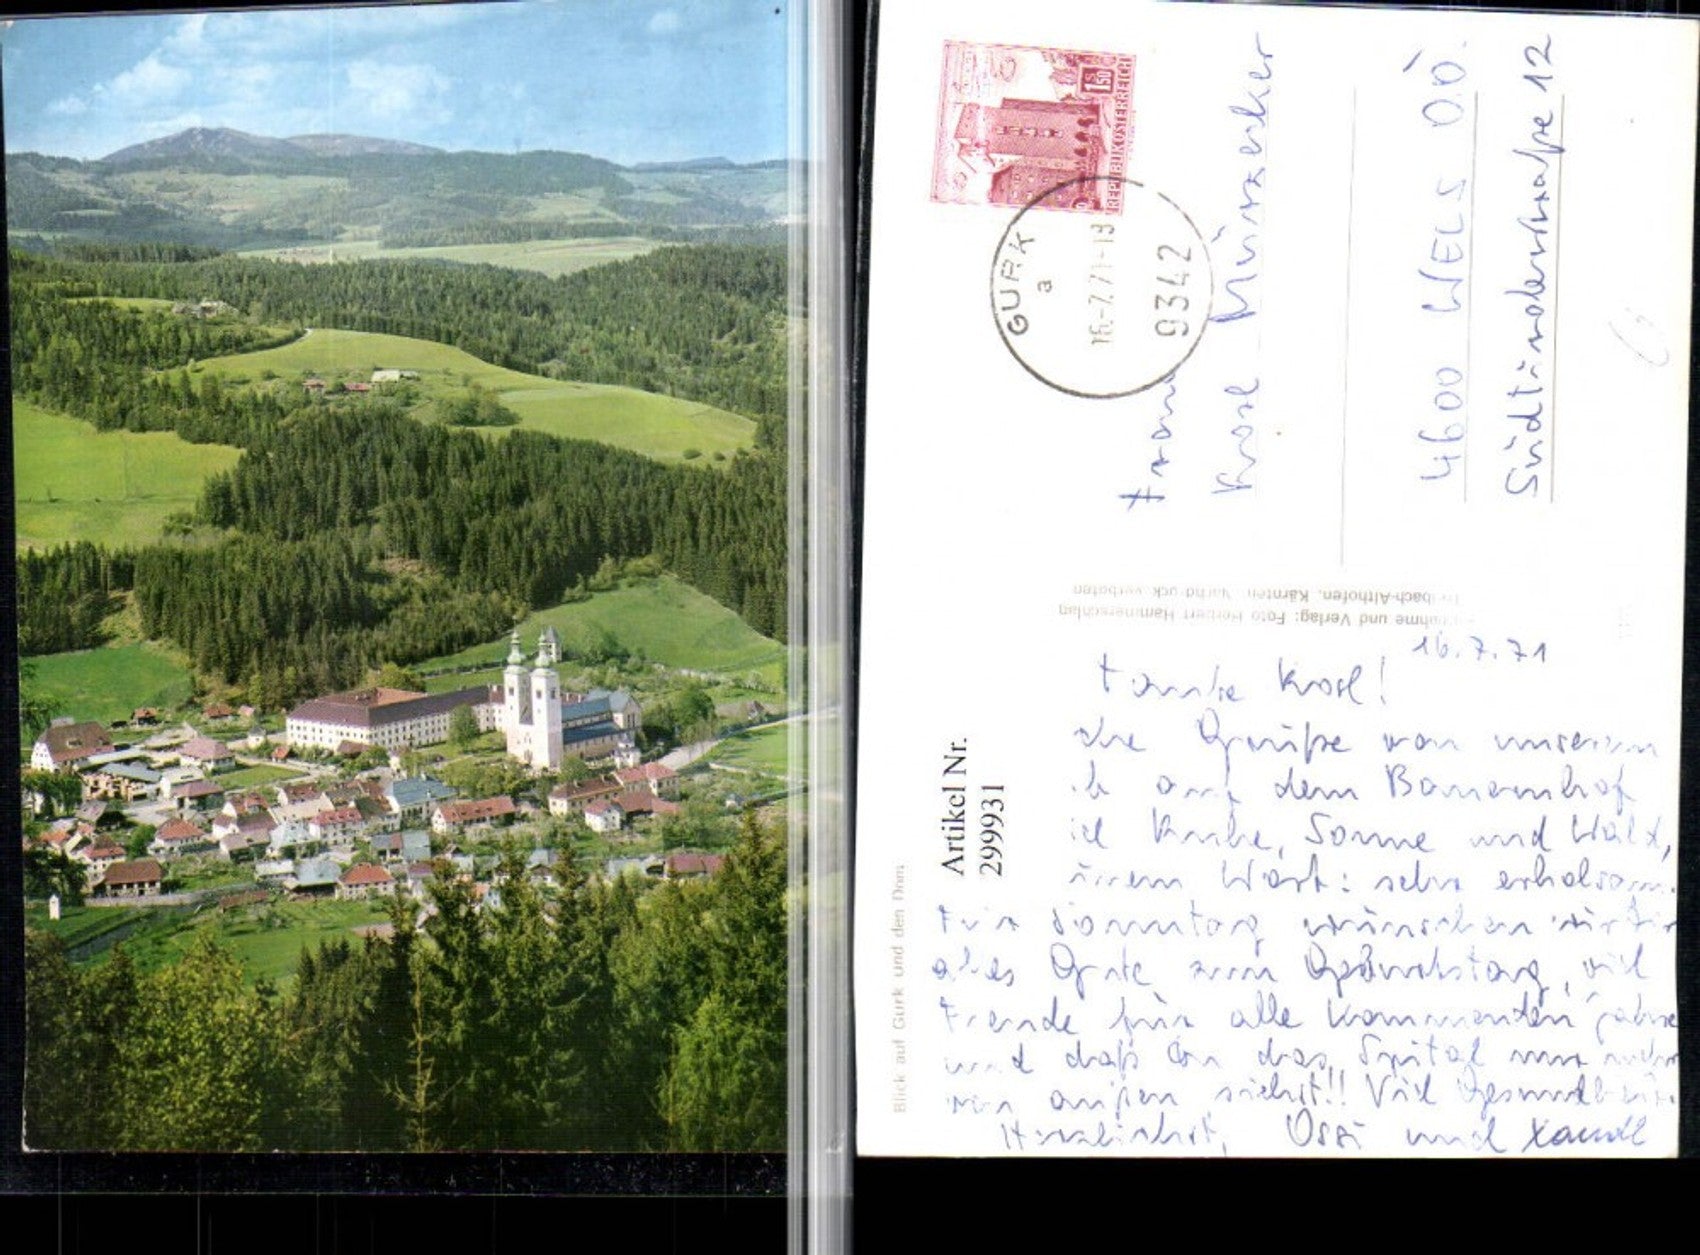 1.50
S
REPUBLIK ÖSTERREICH
GURK
a
16.-7.71-13
9342
4600 WELS OÖ.
Südtirolerstraße 12
Aufnahme und Verlag: Foto Herbert Hammerschlag
Treibach-Althofen, Kärnten. Nachdruck verboten
Artikel Nr.
299931
Blick auf Gurk und den Dom
16.7.71
Tante Rosl!
Grüße von unserem
auf dem Bauernhof
Ruhe, Sonne und Wald,
einem Wort: sehr erholsam.
Für Sonntag wünschen wir Dir
alles Gute zum Geburtstag, viel
Freude für alle kommenden Jahre
und daß Du das Spital nur mehr
von außen siehst!! Viel Gesundheit
Herzlichst, Ossi und Xandl